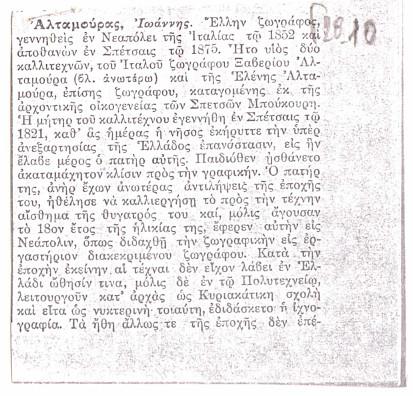 Ἀλταμούρας, Ἰωάννης. Ἕλλην ζωγράφος,
γεννηθεὶς ἐν Νεαπόλει τῆς Ἰταλίας τῷ 1852 καὶ
ἀποθανὼν ἐν Σπέτσαις τῷ 1875. Ἦτο υἱὸς δύο
καλλιτεχνῶν, τοῦ Ἰταλοῦ ζωγράφου Ξαβερίου Ἀλ-
ταμούρα (βλ. ἀνωτέρω) καὶ τῆς Ἑλένης Ἀλτα-
μούρα, ἐπίσης ζωγράφου, καταγομένης ἐκ τῆς
ἀρχοντικῆς οἰκογενείας τῶν Σπετσῶν Μπούκουρη.
Ἡ μήτηρ τοῦ καλλιτέχνου ἐγεννήθη ἐν Σπέτσαις τῷ
1821, καθ' ἃς ἡμέρας ἡ νῆσος ἐκήρυττε τὴν ὑπὲρ
ἀνεξαρτησίας τῆς Ἑλλάδος ἐπανάστασιν, εἰς ἣν
ἔλαβε μέρος ὁ πατὴρ αὐτῆς. Παιδιόθεν ᾐσθάνετο
ἀκαταμάχητον κλίσιν πρὸς τὴν γραφικήν. Ὁ πατήρ
της, ἀνὴρ ἔχων ἀνωτέρας ἀντιλήψεις τῆς ἐποχῆς
του, ἠθέλησε νὰ καλλιεργήσῃ τὸ πρὸς τὴν τέχνην
αἴσθημα τῆς θυγατρός του καί, μόλις ἄγουσαν
τὸ 18ον ἔτος τῆς ἡλικίας της, ἔφερεν αὐτὴν εἰς
Νεάπολιν, ὅπως διδαχθῇ τὴν ζωγραφικὴν εἰς ἐρ-
γαστήριον διακεκριμένου ζωγράφου. Κατὰ τὴν
ἐποχὴν ἐκείνην αἱ τέχναι δὲν εἶχον λάβει ἐν Ἑλ-
λάδι ὤθησίν τινα, μόλις δὲ ἐν τῷ Πολυτεχνείῳ,
λειτουργοῦν κατ' ἀρχὰς ὡς Κυριακάτικη σχολὴ
καὶ εἶτα ὡς νυκτερινὴ τοιαύτη, ἐδιδάσκετο ἡ ἰχνο-
γραφία. Τὰ ἤθη ἄλλως τε τῆς ἐποχῆς δὲν ἐπέ-